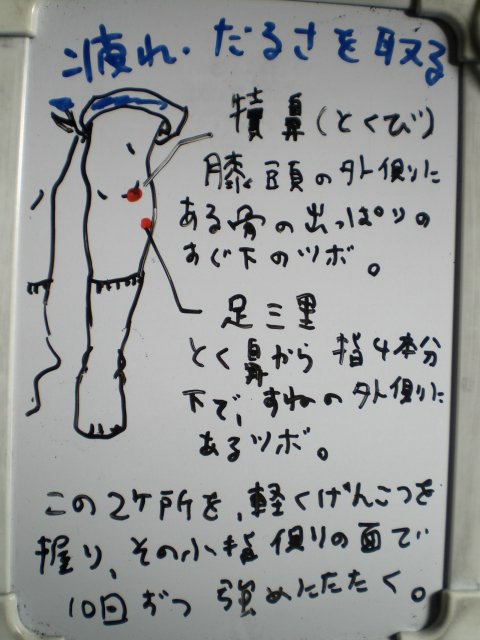 疲れ・だるさを取る
犢鼻(とくび)
膝頭の外側に
ある骨の出っぱりの
すぐ下のツボ。
足三里
とく鼻から指4本分
下で、すねの外側に
あるツボ。
この2ケ所を、軽くげんこつを
握り、その小指側の面で
10回ずつ強めにたたく。